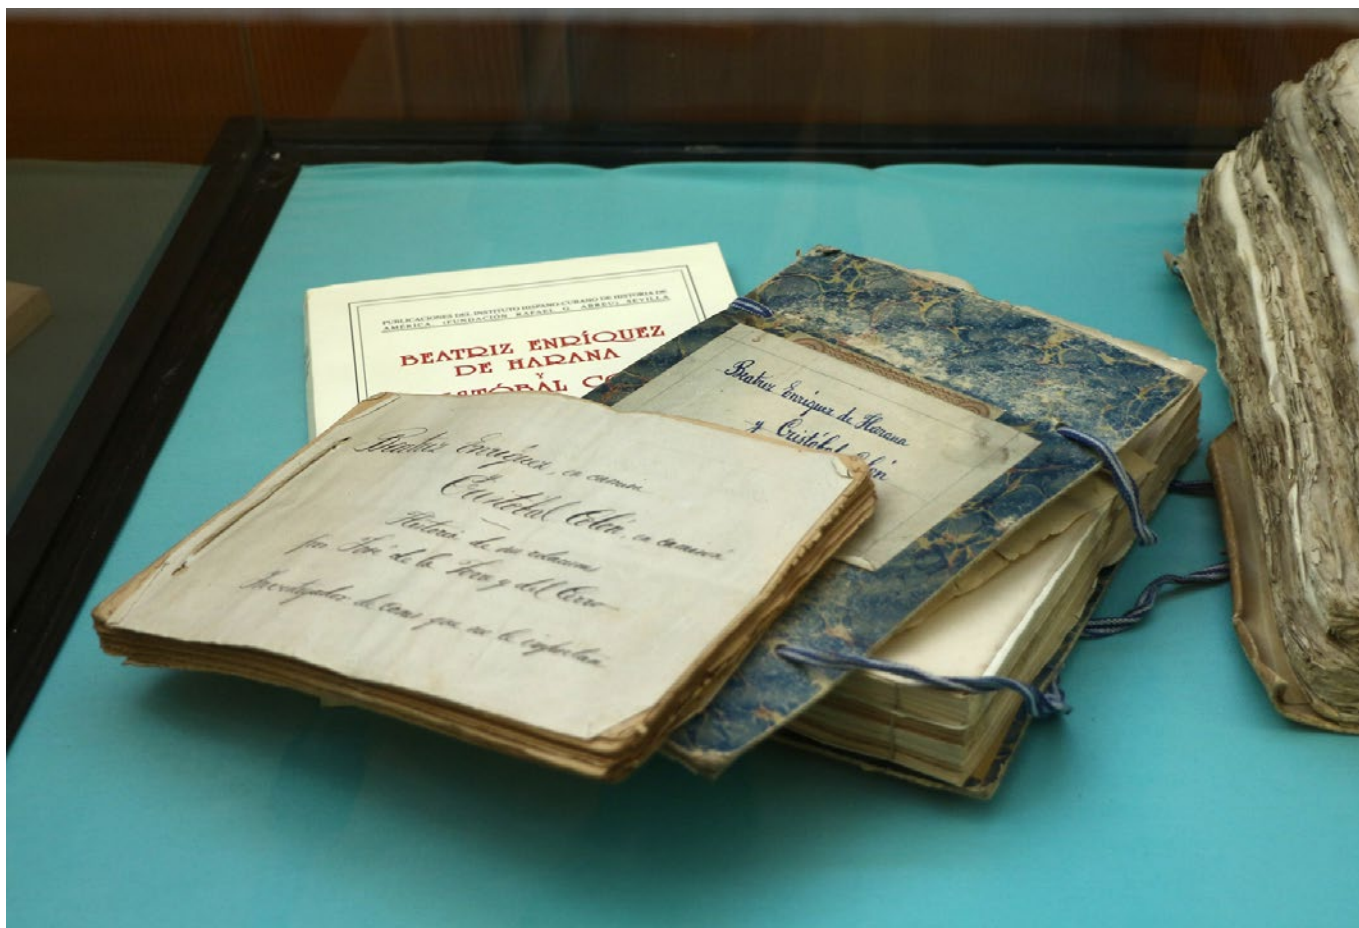 PUBLICACIONES DEL INSTITUTO HISPANO-CUBANO DE HISTORIA DE
AMÉRICA (FUNDACIÓN RAFAEL G. ABREU). SEVILLA
BEATRIZ ENRÍQUEZ
DE HARANA
Y
Beatriz Enríquez de Harana
y Cristóbal
Beatriz Enríquez, en camisa
Cristóbal Colón, en camisa
Historia de sus relaciones
por José de la Torre y del Cerro
Investigador de cosas que no le importan